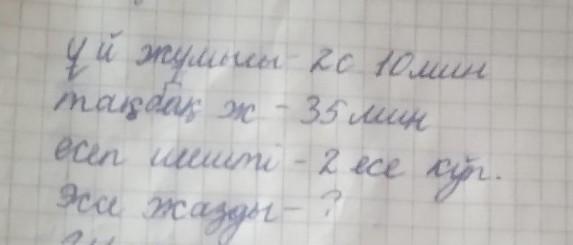 үй жұмысы - 2с 10мин
тақпақ ж - 35 мин
есеп шешті - 2 есе көп.
жазды - ?